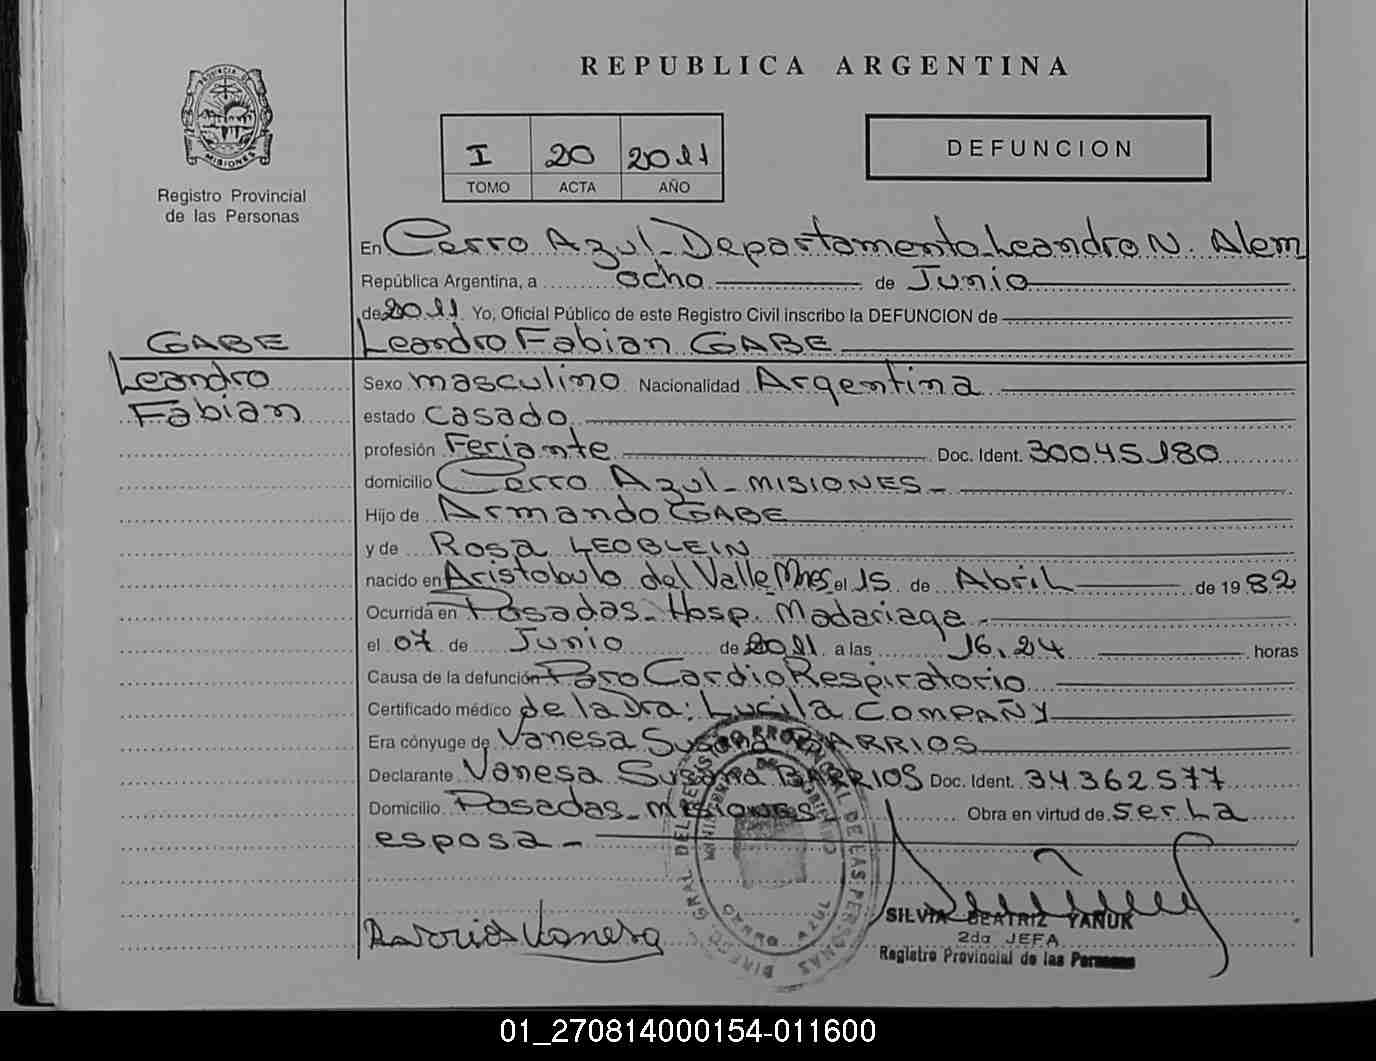 REPUBLICA ARGENTINA
PROVINCIA DE MISIONES
Registro Provincial
de las Personas
I 20 2011
TOMO ACTA AÑO
DEFUNCION
En Cerro Azul - Departamento Leandro N. Alem
República Argentina, a ocho de Junio
de 2011 Yo, Oficial Público de este Registro Civil inscribo la DEFUNCION de
GABE
Leandro Fabian GABE
Leandro
Fabian
Sexo masculino Nacionalidad Argentina
estado casado
profesión Feriante Doc. Ident. 30045180
domicilio Cerro Azul - MISIONES -
Hijo de Armando GABE
y de Rosa LEOBLEIN
nacido en Aristobulo del Valle Mnes el 15 de Abril de 1982
Ocurrida en Posadas - Hosp. Madariaga -
el 07 de Junio de 2011 a las 16,24 horas
Causa de la defunción Paro Cardio Respiratorio
Certificado médico de la Dra: Lucila COMPAÑY
Era cónyuge de Vanesa Susana BARRIOS
Declarante Vanesa Susana BARRIOS Doc. Ident. 34362577
Domicilio Posadas - MISIONES Obra en virtud de ser la
esposa -
Barrios Vanesa
SILVIA BEATRIZ YANUK
2da JEFA
Registro Provincial de las Personas
01_270814000154-011600